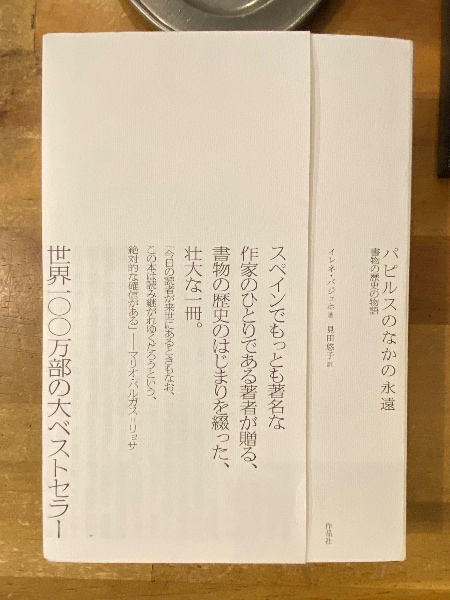 パピルスのなかの永遠
書物の歴史の物語
イレネ・バジェホ 著
見田悠子 訳
作品社
スペインでもっとも著名な
作家のひとりである著者が贈る、
書物の歴史のはじまりを綴った、
壮大な一冊。
「今日の読者が来世にあるときもなお、
この本は読み継がれゆくだろうという、
絶対的な確信がある」——マリオ・バルガス=リョサ
世界一〇〇万部の大ベストセラー